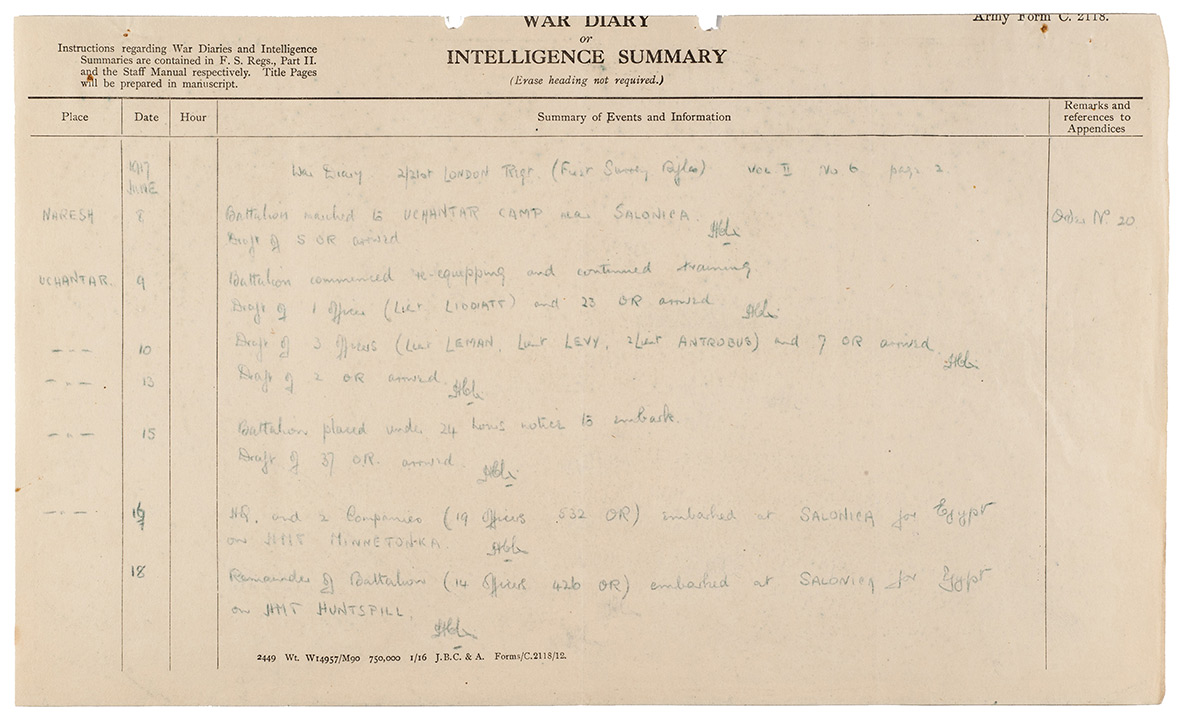 WAR DIARY
Army Form C. 2118.
or
INTELLIGENCE SUMMARY
(Erase heading not required.)
Instructions regarding War Diaries and Intelligence
Summaries are contained in F. S. Regs., Part II.
and the Staff Manual respectively. Title Pages
will be prepared in manuscript.
Place Date Hour Summary of Events and Information Remarks and references to Appendices
1917
JUNE
War Diary 2/21st LONDON Regt. (First Surrey Rifles) Vol II No 6 page 2.
NARESH 8 Battalion marched to UCHANTAR CAMP near SALONICA. Order No. 20
Draft of 5 OR arrived
UCHANTAR. 9 Battalion commenced re-equipping and continued training
Draft of 1 officer (Lieut LIDDIATT) and 23 OR arrived
— " — 10 Draft of 3 officers (Lieut LEMAN, Lieut LEVY, 2Lieut ANTROBUS) and 7 OR arrived.
— " — 13 Draft of 2 OR arrived.
— " — 15 Battalion placed under 24 hours notice to embark.
Draft of 37 OR. arrived.
— " — 16 HQ. and 2 Companies (19 officers 532 OR) embarked at SALONICA for Egypt
on HMT MINNETONKA.
18 Remainder of Battalion (14 Officers 426 OR) embarked at SALONICA for Egypt
on HMT HUNTSPILL.
2449 Wt. W14957/M90 750,000 1/16 J.B.C. & A. Forms/C.2118/12.